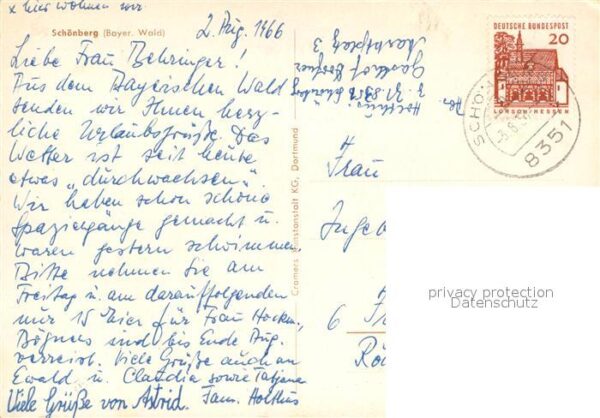 x hier wohnen wir.
Schönberg (Bayer. Wald)
2. Aug. 1966
Liebe Frau Behringer!
Aus dem Bayerischen Wald
senden wir Ihnen herz-
liche Urlaubsgrüße. Das
Wetter ist seit heute
etwas „durchwachsen".
Wir haben schon schöne
Spaziergänge gemacht u.
waren gestern schwimmen.
Bitte nehmen Sie am
Freitag u. am darauffolgenden
nur 15 Eier für Frau
sind bis Ende Aug.
verreist. Viele Grüße auch an
Ewald u. Claudia sowie Tatjana
Viele Grüße von Astrid. Fam. Holthus
Cramers Kunstanstalt KG, Dortmund
Holthus
Gasthof
Marktplatz 3
DEUTSCHE BUNDESPOST
20
LORSCH/HESSEN
8351
Frau
Inge
6
privacy protection
Datenschutz